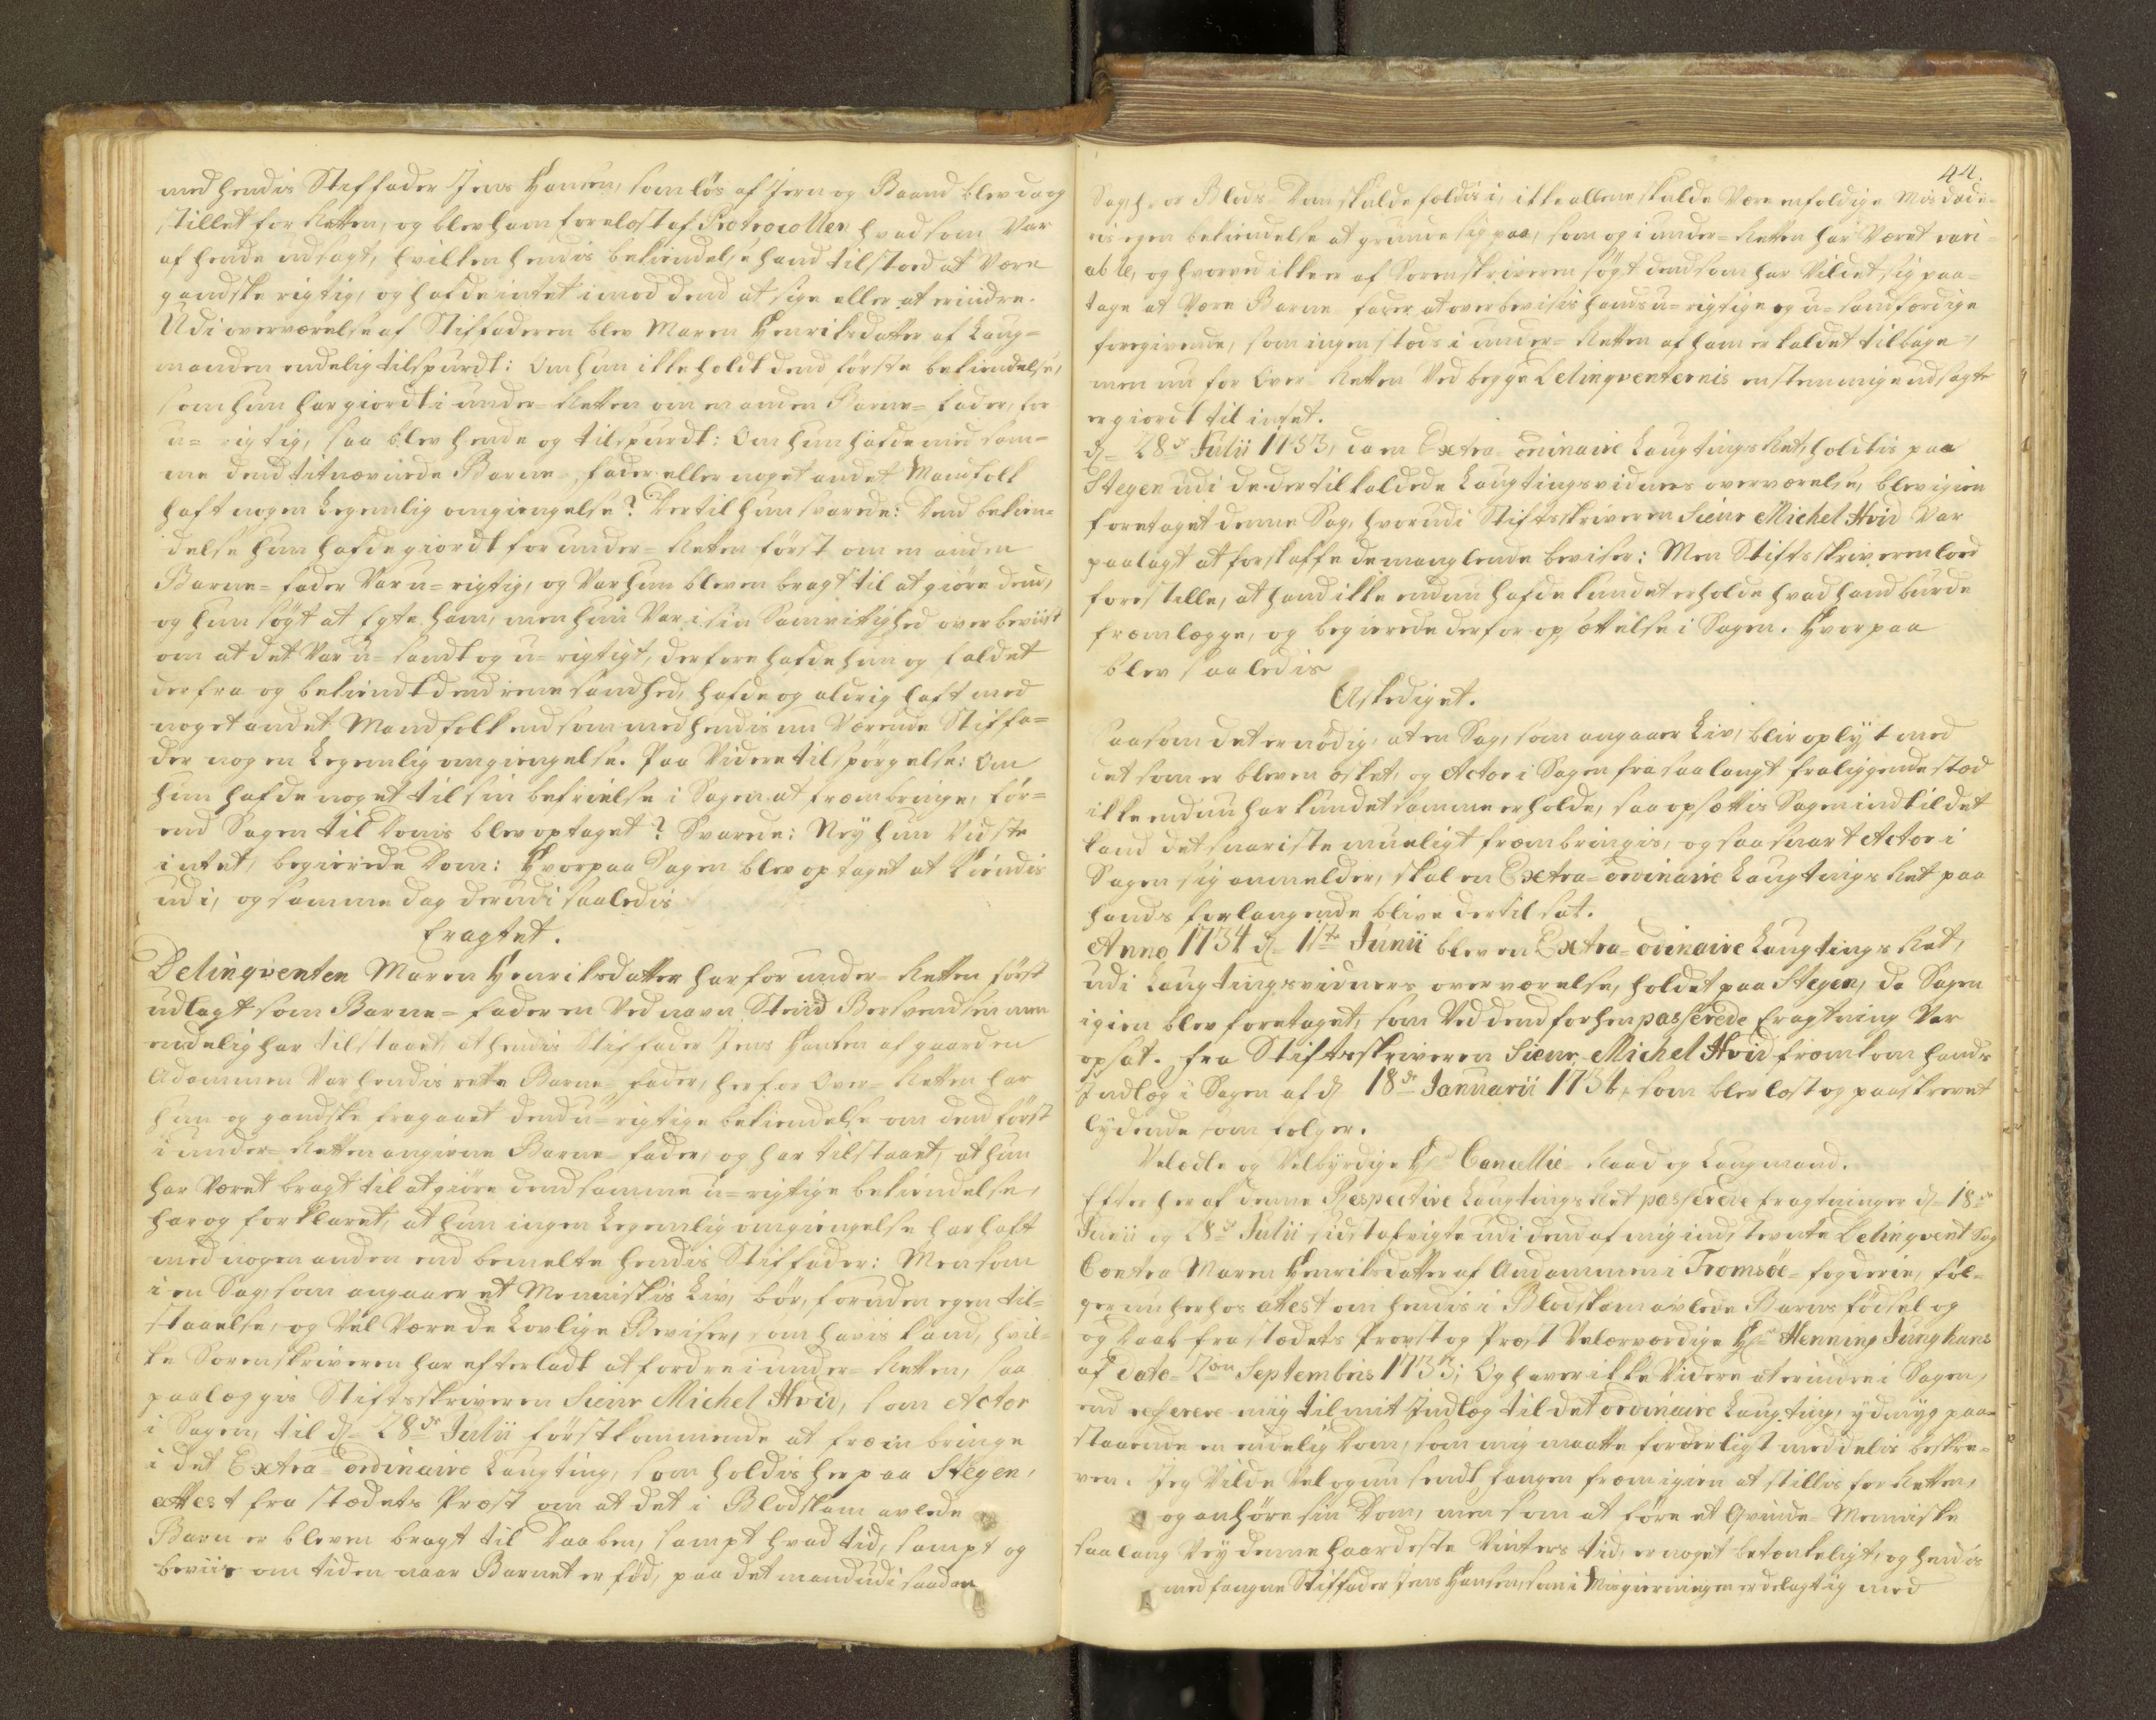 med hendis Stiffader Jens Hansen, som løs af Jern og Baand blev da og
stillet for Retten, og blev ham forelæst af Protocollen hvad som var
af hende udsagt, hvilken hendis bekiendelse hand tilstoed at være
gandske rigtig, og hafde intet imod dend at sige eller at erindre.
Udi overværelse af Stiffaderen blev Maren Henriksdatter af Laug-
manden endelig tilspurdt: Om hun ikke holdt dend første bekiendelse,
som hun har giordt i under-Retten om en anden Barne-fader, for
u-rigtig, saa blev hende og tilspurdt: Om hun hafde med sam-
me dend titnævnede Barne-fader eller noget andet Mandfolk
haft nogen Legemlig omgiengelse? Dertil hun svarede: Dend bekien-
delse hun hafde giordt for under-Retten først om en anden
Barne-fader var u-rigtig, og var hun bleven bragt til at giøre dend,
og hun søgt at Egte ham, men hun var i sin Samvitighed overbeviist
om at det var u-sandt og u-rigtigt, derfore hafde hun og faldet
derfra og bekiendt dend rene sandhed, hafde og aldrig haft med
noget andet Mandfolk end som med hendis nu værende Stiffa-
der nogen Legemlig omgiengelse. Paa videre tilspørgelse: Om
hun hafde noget til sin befrielse i Sagen at frembringe, før-
end Sagen til Doms blev optaget? Svarede: Nej hun vidste
intet, begierede Dom: Hvorpaa Sagen blev optaget at kiendis
udi, og samme dag derudi saaledis
Eragtet.
Delinqventen Maren Henriksdatter har for under-Retten først
udlagt som Barne-fader en ved navn Steud Bersvendsen men
endelig har tilstaaet, at hendis Stiffader Jens Hansen af gaarden
Adammen var hendis rette Barne-fader, her for Over-Retten har
hun og gandske fragaaet dend u-rigtige bekiendelse om dend først
i under-Retten angivne Barne-fader, og har tilstaaet, at hun
har været bragt til at giøre dend samme u-rigtige bekiendelse,
har og forklaret, at hun ingen Legemlig omgiengelse har haft
med nogen anden end bemelte hendis Stiffader: Men som
i en Sag, som angaaer et Menniskis Liv, bør, foruden egen til-
staaelse, og vel være de Lovlige Beviser, som havis kand, hvil-
ke Sorenskriveren har efterladt at fordre i under-Retten, saa
paalæggis Stiftsskriveren Sieur Michel Hvid, som Actor
i Sagen, til d. 28de Julii førstkommende at frembringe
i det Extra-ordinaire Laugting, som holdis her paa Stegen,
attest fra stædets Præst om at det i Blodskam avlede
Barn er bleven bragt til Daaben, sampt hvad tid, sampt og
beviis om tiden naar Barnet er fød, paa det mand udi saadan
44.
Sag, hvor Blods-Dom skulde fældis i, ikke allene skulde være enfoldige Misdæde-
ris egen bekiendelse at grunde sig paa, som og i under-Retten har været vari-
able, og hvorved ikke er af Sorenskriveren søgt dend som har vildet sig paa-
tage at være Barne fader, at overbevisis hands u-rigtige og u-sandfærdige
foregivende, som ingenstæds i under-Retten af ham er kaldet tilbage,
men nu for Over-Retten ved begge Delinqventernis enstemmige udsagte
er giordt til intet.
d. 28de Julii 1733, da en Extra-ordinaire Laugtings Ret, holdtis paa
Stegen udi de dertil kaldede Laugtingsvidners overværelse, blev igien
foretaget denne Sag, hvorudi Stiftsskriveren Sieur Michel Hvid var
paalagt at forskaffe de manglende beviser: Men Stiftsskriveren loed
forestille, at hand ikke endnu hafde kundet erholde hvad hand burde
fremlægge, og begierede derfor opsættelse i Sagen. Hvorpaa
blev saaledis
Afskediget.
Saasom det er nødig, at en Sag, som angaaer Liv, blir oplyst med
det som er bleven æsket, og Actor i Sagen fra saa langt fraliggende stæd
ikke endnu har kundet samme erholde, saa opsættis Sagen indtil det
kand det snariste mueligt frembringis, og saa snart Actor i
Sagen sig anmelder, skal en Extra-ordinaire Laugtings Ret paa
hands forlangende blive dertil sat.
Anno 1734 d. 17te Junii blev en Extra-ordinaire Laugtings Ret,
udi Laugtingsvidners overværelse, holdet paa Stegen, da Sagen
igien blev foretaget, som ved dend forhen passerede Eragtning var
opsat. Fra Stiftsskriveren Sieur Michel Hvid fremkom hands
Indlæg i Sagen af d. 18de Januarii 1734, som blev læst og paaskrevet
lydende som følger.
Velædle og Velbyrdige Hr. Cancellie-Raad og Laugmand.
Efter her af denne Respective Laugtings Ret passerede Eragtninger d. 18de
Junii og 28de Julii sidst afvigte udi dend af mig indstevnte Delinqvent Sag
Contra Maren Henriksdatter af Andammen i Tromsøe-fogderie, føl-
ger nu herhos attest om hendis i Blodskam avlede Barns fødsel og
og Daab fra stædets Provst og Præst Velærværdige Hr. Henning Junghans
af dato 2den Septembris 1733; Og haver ikke videre at erindre i Sagen,
end referere mig til mit Indlæg til det ordinaire Laugting, ydmyg paa-
staaende en endelig Dom, som mig maatte forderligst meddelis beskre-
ven. Jeg vilde vel og nu sendt fangen frem igien at stillis for Retten,
og anhøre sin Dom, men som at føre et Qvinde-Menniske
saa lang Vej denne haardeste Vinters tid, er noget betænkeligt, og hendis
medfangne Stiffader Jens Hansen, som i Misgierningen er delagtig med